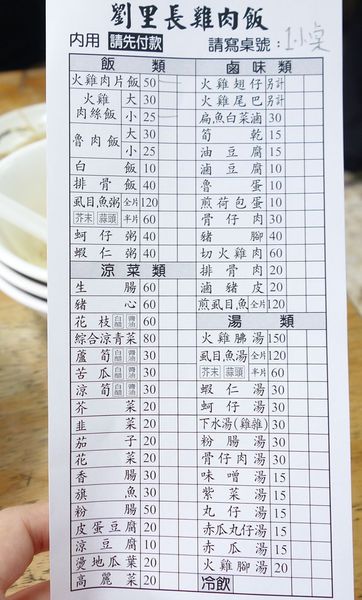 劉里長雞肉飯
內用 請先付款 請寫桌號: 1小桌
飯類
火雞肉片飯 50
火雞肉絲飯 大 30
小 25
魯肉飯 大 30
小 25
白飯 10
排骨飯 40
虱目魚粥 全片 120
芥末 蒜頭 半片 60
蚵仔粥 40
蝦仁粥 40
涼菜類
生腸 60
豬心 60
花枝 白醋 醬油 60
綜合涼青菜 80
蘆筍 白醋 醬油 30
苦瓜 白醋 醬油 30
涼筍 白醋 醬油 30
芥菜 20
韭菜 20
茄子 20
花菜 20
香腸 30
旗魚 30
粉腸 50
皮蛋豆腐 20
涼豆腐 10
燙地瓜葉 20
高麗菜 20
滷味類
火雞翅仔 另計
火雞尾巴 另計
扁魚白菜滷 30
筍乾 15
油豆腐 10
滷豆腐 10
魯蛋 10
煎荷包蛋 10
骨仔肉 30
豬腳 40
切火雞肉 60
排骨肉 20
滷豬皮 20
煎虱目魚 全片 120
湯類
火雞腑湯 150
虱目魚湯 全片 120
芥末 蒜頭 半片 60
蝦仁湯 30
蚵仔湯 30
下水湯(雞雜) 30
粉腸湯 30
骨仔肉湯 30
味噌湯 15
紫菜湯 15
丸仔湯 15
赤瓜丸仔湯 15
赤瓜湯 15
火雞腳湯 20
冷飲